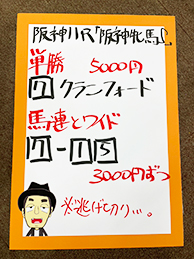 阪神11R「阪神牝馬S」
単勝 5000円
7 クランフォード
馬連とワイド
7-15
3000円ずつ
必逃げ切り…。